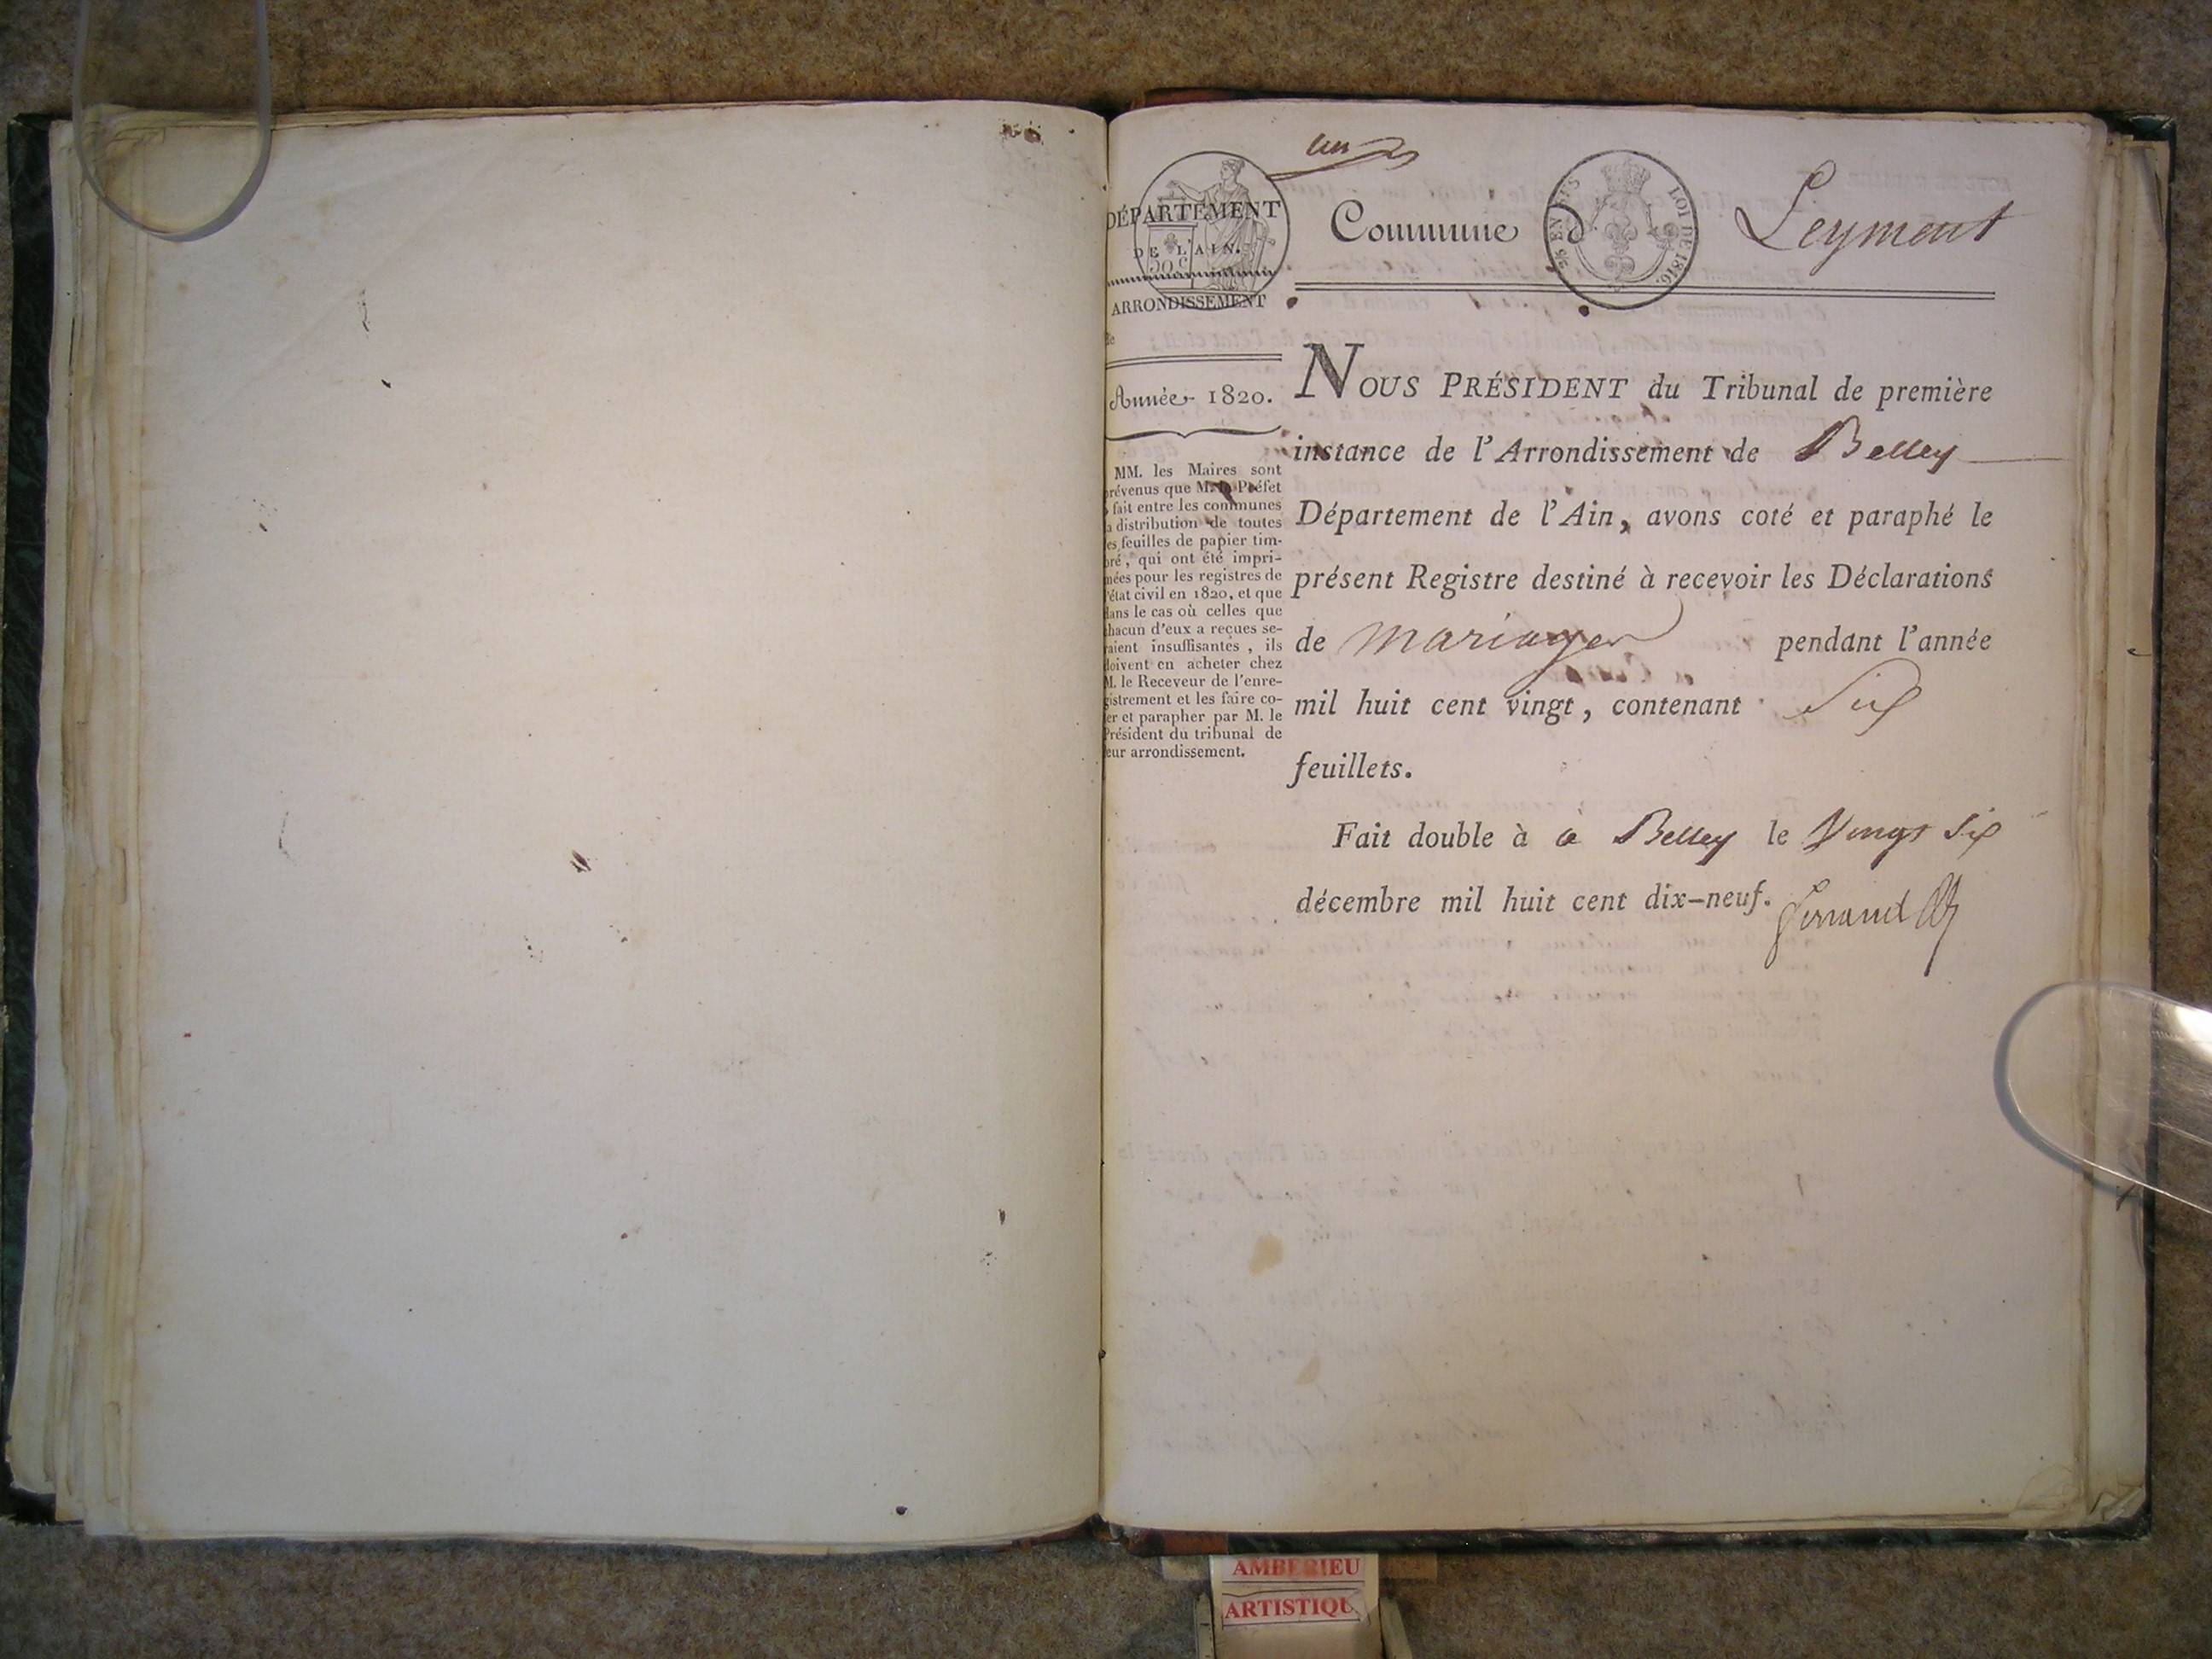 un
DÉPARTEMENT
DE L'AIN.
50 c
ARRONDISSEMENT
de
Année 1820.
MM. les Maires sont
prévenus que M. le Préfet
a fait entre les communes
la distribution de toutes
les feuilles de papier tim-
bré, qui ont été impri-
mées pour les registres de
l'état civil en 1820, et que
dans le cas où celles que
chacun d'eux a reçues se-
raient insuffisantes, ils
doivent en acheter chez
M. le Receveur de l'enre-
gistrement et les faire co-
ter et parapher par M. le
Président du tribunal de
leur arrondissement.
Commune d Leyment
LOI DE 1816.
NOUS PRÉSIDENT du Tribunal de première
instance de l'Arrondissement de Belley
Département de l'Ain, avons coté et paraphé le
présent Registre destiné à recevoir les Déclarations
de mariages pendant l'année
mil huit cent vingt, contenant Six
feuillets.
Fait double à à Belley le Vingt Six
décembre mil huit cent dix-neuf.
AMBERIEU
ARTISTIQU